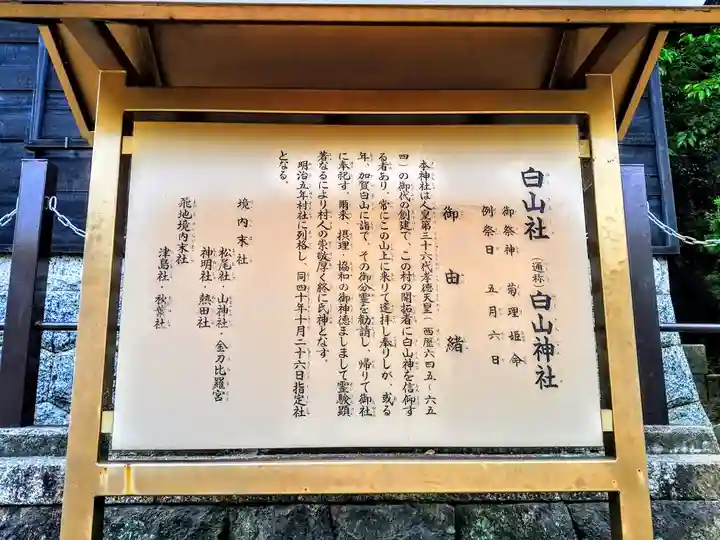 白山社（通称）白山神社
御祭神　菊理姫命
例祭日　五月六日
御由緒
本神社は人皇第三十六代孝徳天皇（西暦六四五～六五
四）の御代の創建で、この村の開拓者に白山神を信仰す
る者あり、常にこの山上に来りて遙拝し奉りしが、或る
年、加賀白山に詣で、その御分霊を勧請し、帰りて御社
に奉祀す。爾来、摂理・協和の御神徳ましまして霊験顕
著なるにより村人の崇敬厚く終に氏神となす。
明治五年村社に列格し、同四十年十月二十六日指定社
となる。
境内末社
松尾社　山神社　金刀比羅宮
神明社・熱田社
飛地境内末社
津島社　秋葉社